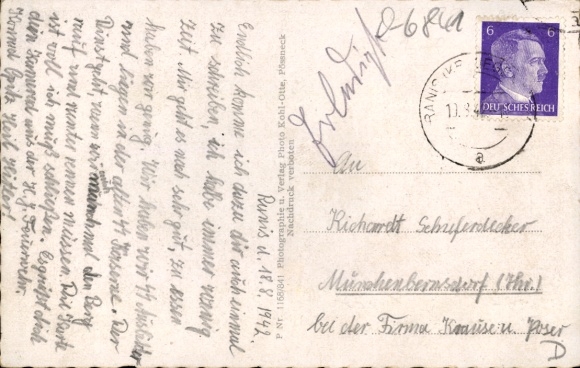 Ranis d. 18.8.1942.
Endlich komme ich dazu dir auch einmal
zu schreiben, ich habe immer wenig
zeit. Mir geht es noch sehr gut, zu essen
haben wir genug. Wir haben
und liegen in der alten Kaserne. Der
Dienst geht, wenn wir auch manchmal den Berg
rauf und runter rennen müssen. Die Karte
ist voll ich muß schließen. Es grüßt dich
dein Kamerad aus der H.J. Feuerwehr.
P Nr. 1156/841 Photographie u. Verlag Photo Kohl-Otte, Pössneck
Nachdruck verboten
Erledigt
06841
6 6
DEUTSCHES REICH
RANIS
a
An
Richardt Schieferdecker
Münchenbernsdorf (Thr.)
bei der Firma Krause u. Poser
D